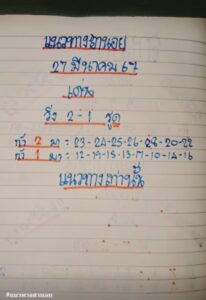 แนวทางฮานอย
27 มีนาคม 67
เด่น
วิ่ง 2-1 รูด
ถ้า 2 มา = 23-24-25-26-28-20-22
ถ้า 1 มา = 12-19-15-13-17-10-14-16
แนวทางเท่านั้น
#แนวทางฮานอย